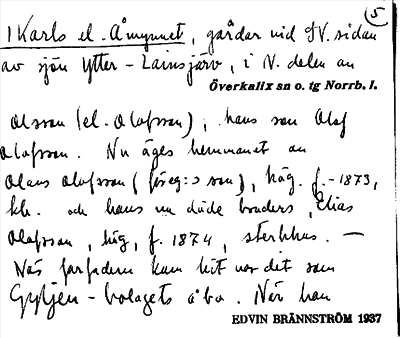 5
1 Karls el. Åmynnet, gårdar vid N. sidan
av sjön Ytter-Lainsjärv, i N. delen av
Överkalix sn o. tg Norrb. l.
Olsson (el. Olofsson), hans son Olof
Olofsson. Nu äges hemmanet av
Olaus Olofsson (föreg:s son), häg. f. -1873,
kh. och hans nu döde broders, Elias
Olofsson, häg, f. 1874, sterbhus. —
När farfadern kom hit var det som
Gyljen-bolagets åbo. När han
EDVIN BRÄNNSTRÖM 1937